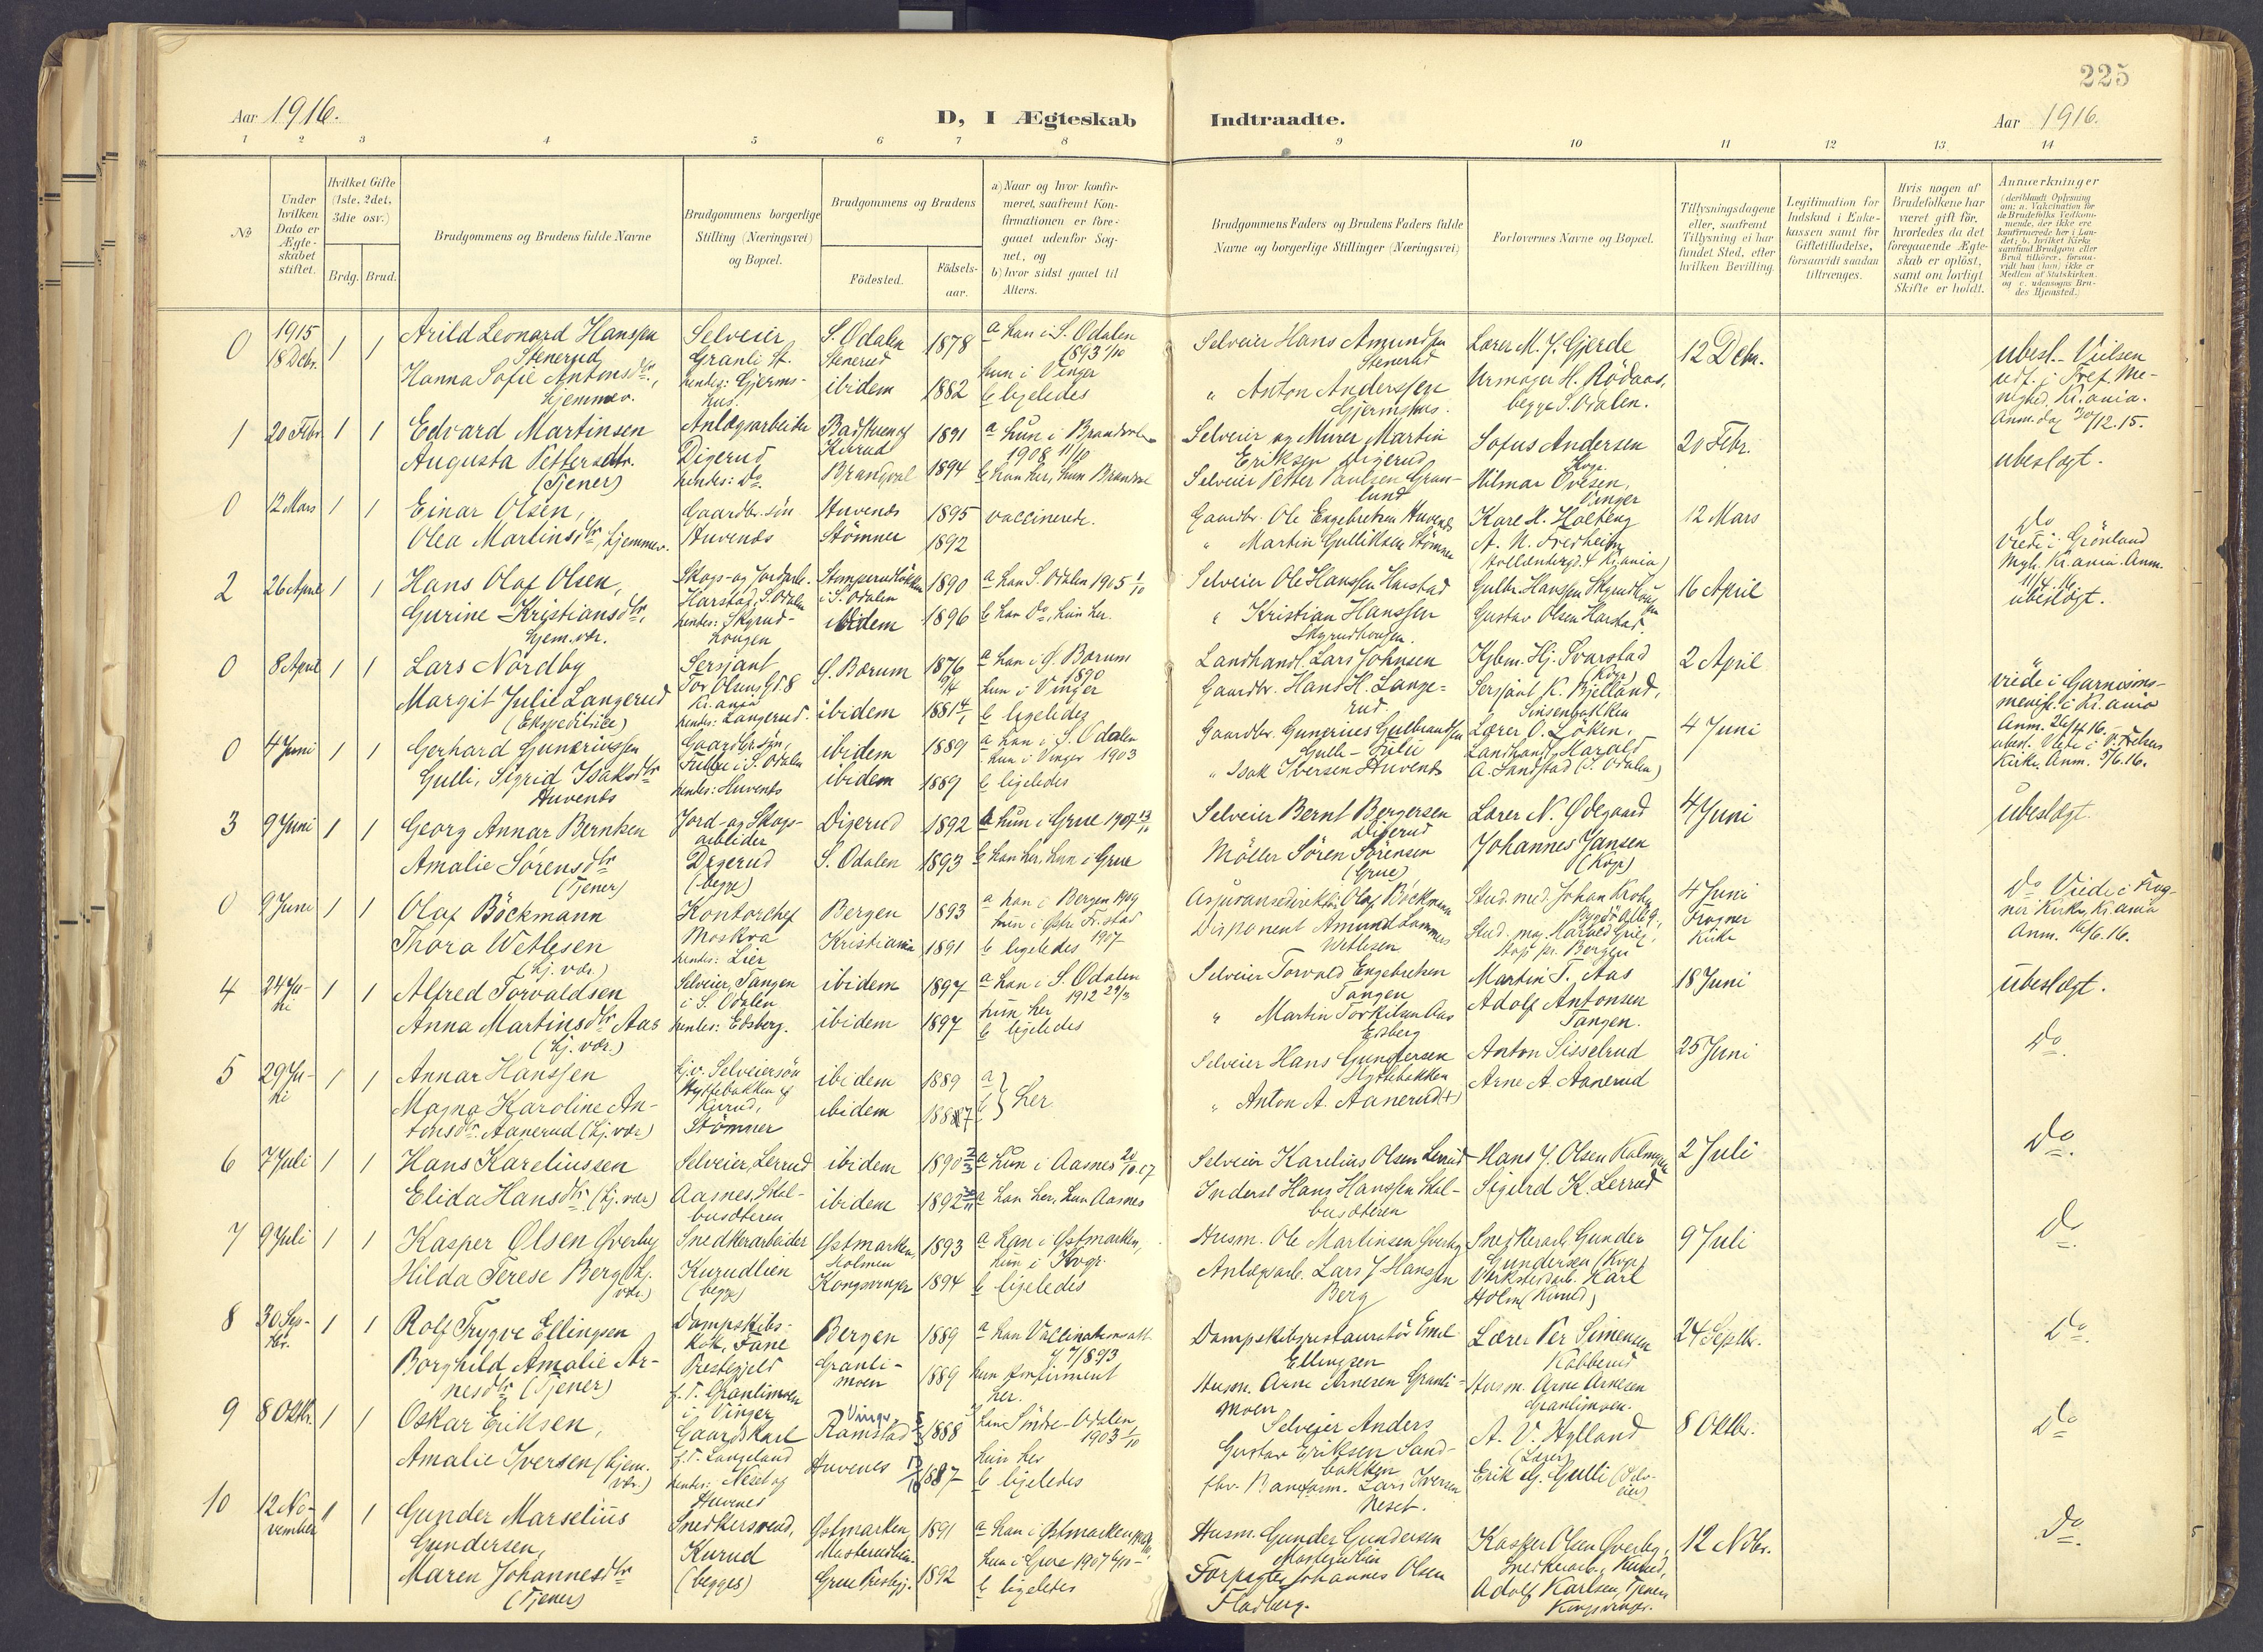 225
Aar 1916.
D, I Ægteskab Indtraadte.
Aar 1916.
1 2 3 4 5 6 7 8 9 10 11 12 13 14
№
Under hvilken Dato er Ægteskabet stiftet.
Hvilket Gifte (1ste, 2det, 3die osv.)
Brdg. Brud.
Brudgommens og Brudens fulde Navne
Brudgommens borgerlige Stilling (Næringsvei) og Bopæl.
Brudgommens og Brudens
Fødested.
Fødselsaar.
a) Naar og hvor konfirmeret, saafremt Konfirmationen er foregaaet udenfor Sognet, og
b) hvor sidst gaaet til Alters.
Brudgommens Faders og Brudens Faders fulde Navne og borgerlige Stillinger (Næringsvei)
Forlovernes Navne og Bopæl.
Tillysningsdagene eller, saafremt Tillysning ei har fundet Sted, efter hvilken Bevilling.
Legitimation for Indskud i Enkekassen samt for Giftetilladelse, forsaavidt saadan tiltrænges.
Hvis nogen af Brudefolkene har været gift før, hvorledes da det foregaaende Ægteskab er opløst, samt om lovligt Skifte er holdt.
Anmærkninger
0 1915 18 Debr. 1 1
Arild Leonard Hanssen Stenerud
Hanna Sofie Antonsdtr., hjemmev.
Selveier Granli St.
hendes: Gjermshus.
S. Odalen Stenerud 1878
ibidem 1882
a han i S. Odalen 1893 1/10
hun i Vinger
b ligeledes
Selveier Hans Amundsen Stenerud
" Anton Anderssen Gjermshus.
Lærer M. J. Gjerde
Urmager H. Rødaas, begge S. Odalen.
12 Debr.
ubesl. - Vielsen udf. i Tref. Menighed. Kr.ania. Anm. dag 30/12.15.
1 20 Febr 1 1
Edvard Martinsen
Augusta Pettersdtr. (Tjener)
Anlægsarbeider Digerud
hendes: Do.
Kurud 1891
Brandval 1894
a hun i Brandval 1908 11/10
b han her, hun Brandval
Selveier og Murer Martin Eriksen Digerud
Selveier Petter Paulsen Granlund
Sofus Andersen Kvgr.
Hilmar Ovesen, Vinger
20 Febr.
ubeslægt.
0 12 Mars 1 1
Einar Olsen,
Olea Martinsdtr, hjemmev.
Gaardbr. søn Huvenes
Huvenes 1895
Stömner 1892
vaccinerede.
Gaardbr. Ole Engebretsen Huvenes
" Martin Gulliksen Stömner
Kare H. Holberg
A. N. Fredheim
12 Mars
Do
Viede i Grönland Mgh. Kr.ania. Anm. 11/4.16.
2 26 April 1 1
Hans Olaf Olsen,
Gurine Kristiansdtr, hjem. vær.
Skogs- og Jordarb. Harstad, S. Odalen
hendes: Skyrudhougen
i S. Odalen 1890
ibidem 1896
a han S. Odalen 1905 1/10
b han Do, hun her.
Selveier Ole Hanssen Harstad
" Kristian Hanssen Skyrudhougen.
Gulbr. Hanssen Skyrudhougen
Gustav Olsen Harstad.
16 April
ubeslægt.
0 8 April 1 1
Lars Nordby
Margit Julie Langerud (Ekspeditrice)
Sersjant Tor Olsens Gt. 8 Kr.ania
hendes: Langerud.
Ø. Bærum 1876 9/4
ibidem 1881 4/1
a han i Ø. Bærum 1890
hun i Vinger
b ligeledes
Landhandl. Lars Johnsen
Gaardbr. Hans H. Langerud.
Kjbm. Hj. Svarstad (Kvgr)
Sersjant K. Bjelland, Sinsenbakken
2 April
"
viede i Garnisonsmenigh. i Kr.ania Anm. 26/4 16.
0 4 Juni 1 1
Gerhard Guneriussen Gulli,
Sigrid Isaksdtr Huvenes
Gaardbr. søn, i S. Odalen
hendes: Huvenes
ibidem 1889
ibidem 1889
a han i S. Odalen
hun i Vinger 1903
b ligeledes
Gaardbr. Gunerius Gulbrandsen Gulli
" Isak Iversen Huvenes
Lærer O. Løken,
Landhandl. Harald A. Sandstad (S. Odalen)
4 Juni
ubesl. Viede i V. Frelsers Kirke. Anm. 5/6.16.
3 9 Juni 1 1
Georg Annar Berntsen
Amalie Sørensdtr (Tjener)
Jord- og Skogsarbeider Digerud (begge)
Digerud 1892
S. Odalen 1893
a hun i Grue 1907 13/10
b han her, hun i Grue
Selveier Bernt Bergersen Digerud
Møller Sören Sörensen (Grue)
Lærer N. Ødegaard
Johannes Jansen (Kvgr)
4 Juni
ubeslægt.
0 9 Juni 1 1
Olaf Böckmann
Thora Wetlesen (hj. vær.)
Kontorchef Moskva
hendes: Lier
Bergen 1893
Kristiania 1891
a han i Bergen 1909
hun i Østre Fr.stad 1907
b ligeledes
Asjuransedirektör Olaf Böckmann
Disponent Amund Lammers Wetlesen
Stud. med. Johan Kroby Bygdö Allé 9.
Stud. mag. Harald Grieg, Stop pr. Bergen
4 Juni Frogner Kirke
Do Viede i Frogner Kirke, Kr.ania Anm. 14/6.16.
4 24 Juni 1 1
Alfred Torvaldsen
Anna Martinsdtr Aas (hj. vær.)
Selveier, Tangen i S. Odalen
hendes: Edsberg.
ibidem 1897
ibidem 1897
a han i S. Odalen 1912 29/3
hun her
b ligeledes
Selveier Torvald Engebretsen Tangen
" Martin Torkilsen Aas Edsberg
Martin T. Aas
Adolf Antonsen Tangen.
18 Juni
ubeslægt.
5 29 Juni 1 1
Annar Hanssen
Magna Karoline Antonsdtr. Aanerud (hj. vær)
hj. v. Selveiersøn Hyttebakken af Kurud,
Stömner
ibidem 1889
ibidem 1887
a b } her
Selveier Hans Gundersen Hyttebakken
" Anton A. Aanerud (+)
Anton Sisselrud
Arne A. Aanerud
25 Juni
Do
6 7 Juli 1 1
Hans Kareliussen
Elida Hansdtr. (hj. vær)
Selveier, Lerrud
Aasnes, Skolbusæteren
ibidem 1890 2/3
ibidem 1892
a hun i Aasnes 20/10.07
a han her, hun Aasnes
Selveier Karelius Olsen Lerrud
Inderst Hans Hanssen Skolbusæteren
Hans J. Olsen Kolmoen
Sigurd K. Lerrud
2 Juli
Do.
7 9 Juli 1 1
Kasper Olsen Øverby
Hilda Terese Berg (hj. vær.)
Snedkerarbeider Kurudlien (begge)
Østmarken, Holmen 1893
Kongsvinger 1894
a han i Østmarken, hun i Kvgr.
b ligeledes
Husm. Ole Martinsen Øverby
Anlægsarb. Lars J Hansen Berg
Snedkerarb. Gunder Gundersen (Kvgr)
Verkstedarb. Karl Holm (Kurud)
9 Juli
Do.
8 30 Septbr. 1 1
Rolf Trygve Ellingsen
Borghild Amalie Arnesdtr (Tjener)
Dampskibskok, Fane Prestegjeld
f. T. Granlimoen i Vinger
Bergen 1889
Granlimoen 1889
a han Vaccinationsatt. 4/7 1893
hun konfirmert her.
Dampskibsrestauratör Emil Ellingsen
Husm. Arne Arnesen Granlimoen
Lærer Per Simensen Kabberud
Husm. Arne Arnesen Granlimoen.
24 Septbr.
Do.
9 8 Oktbr. 1 1
Oskar Eriksen,
Amalie Iversen (hjem. vær.)
Gaardskarl f. T. Langeland
hendes: Neset af Huvenes
Vinger, Ramstad 1888
Huvenes 1887
han Söndre-Odalen 1903 1/10
hun her
b ligeledes
Selveier Anders Gustav Eriksen Sandbakken
fhv. Baneform. Lars Iversen Neset.
A. V. Hylland (Lærer)
Erik G. Gulli (Selveier)
8 Oktbr.
Do
10 12 November 1 1
Gunder Marselius Gundersen,
Maren Johannesdtr (Tjener)
Snedkersvend, Kurud (begges)
Østmarken, Masterudlien. 1891
Grue Prestegj. 1892
a han i Østmarken
hun i Grue 1907 6/10
b ligeledes
Husm. Gunder Gundersen Masterudlien
Forpagter Johannes Olsen Fladberg.
Kasper Olsen Øverby, Snedkerarb., Kurud,
Adolf Karlsen, Tjener Kongsvinger.
12 Novbr.
Do.